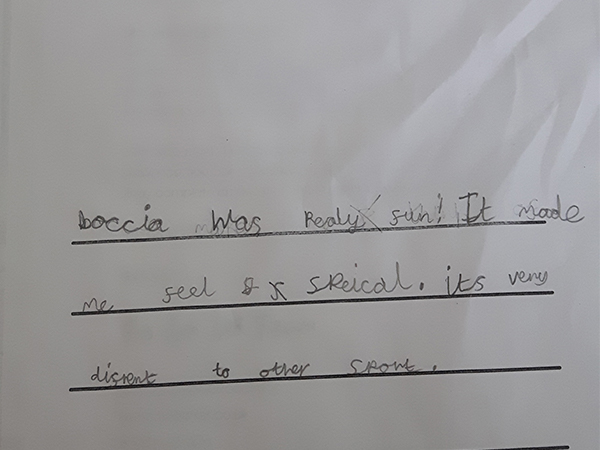 boccia was Realy fun! It made
me feel SPeical. its very
difrent to other SPort.